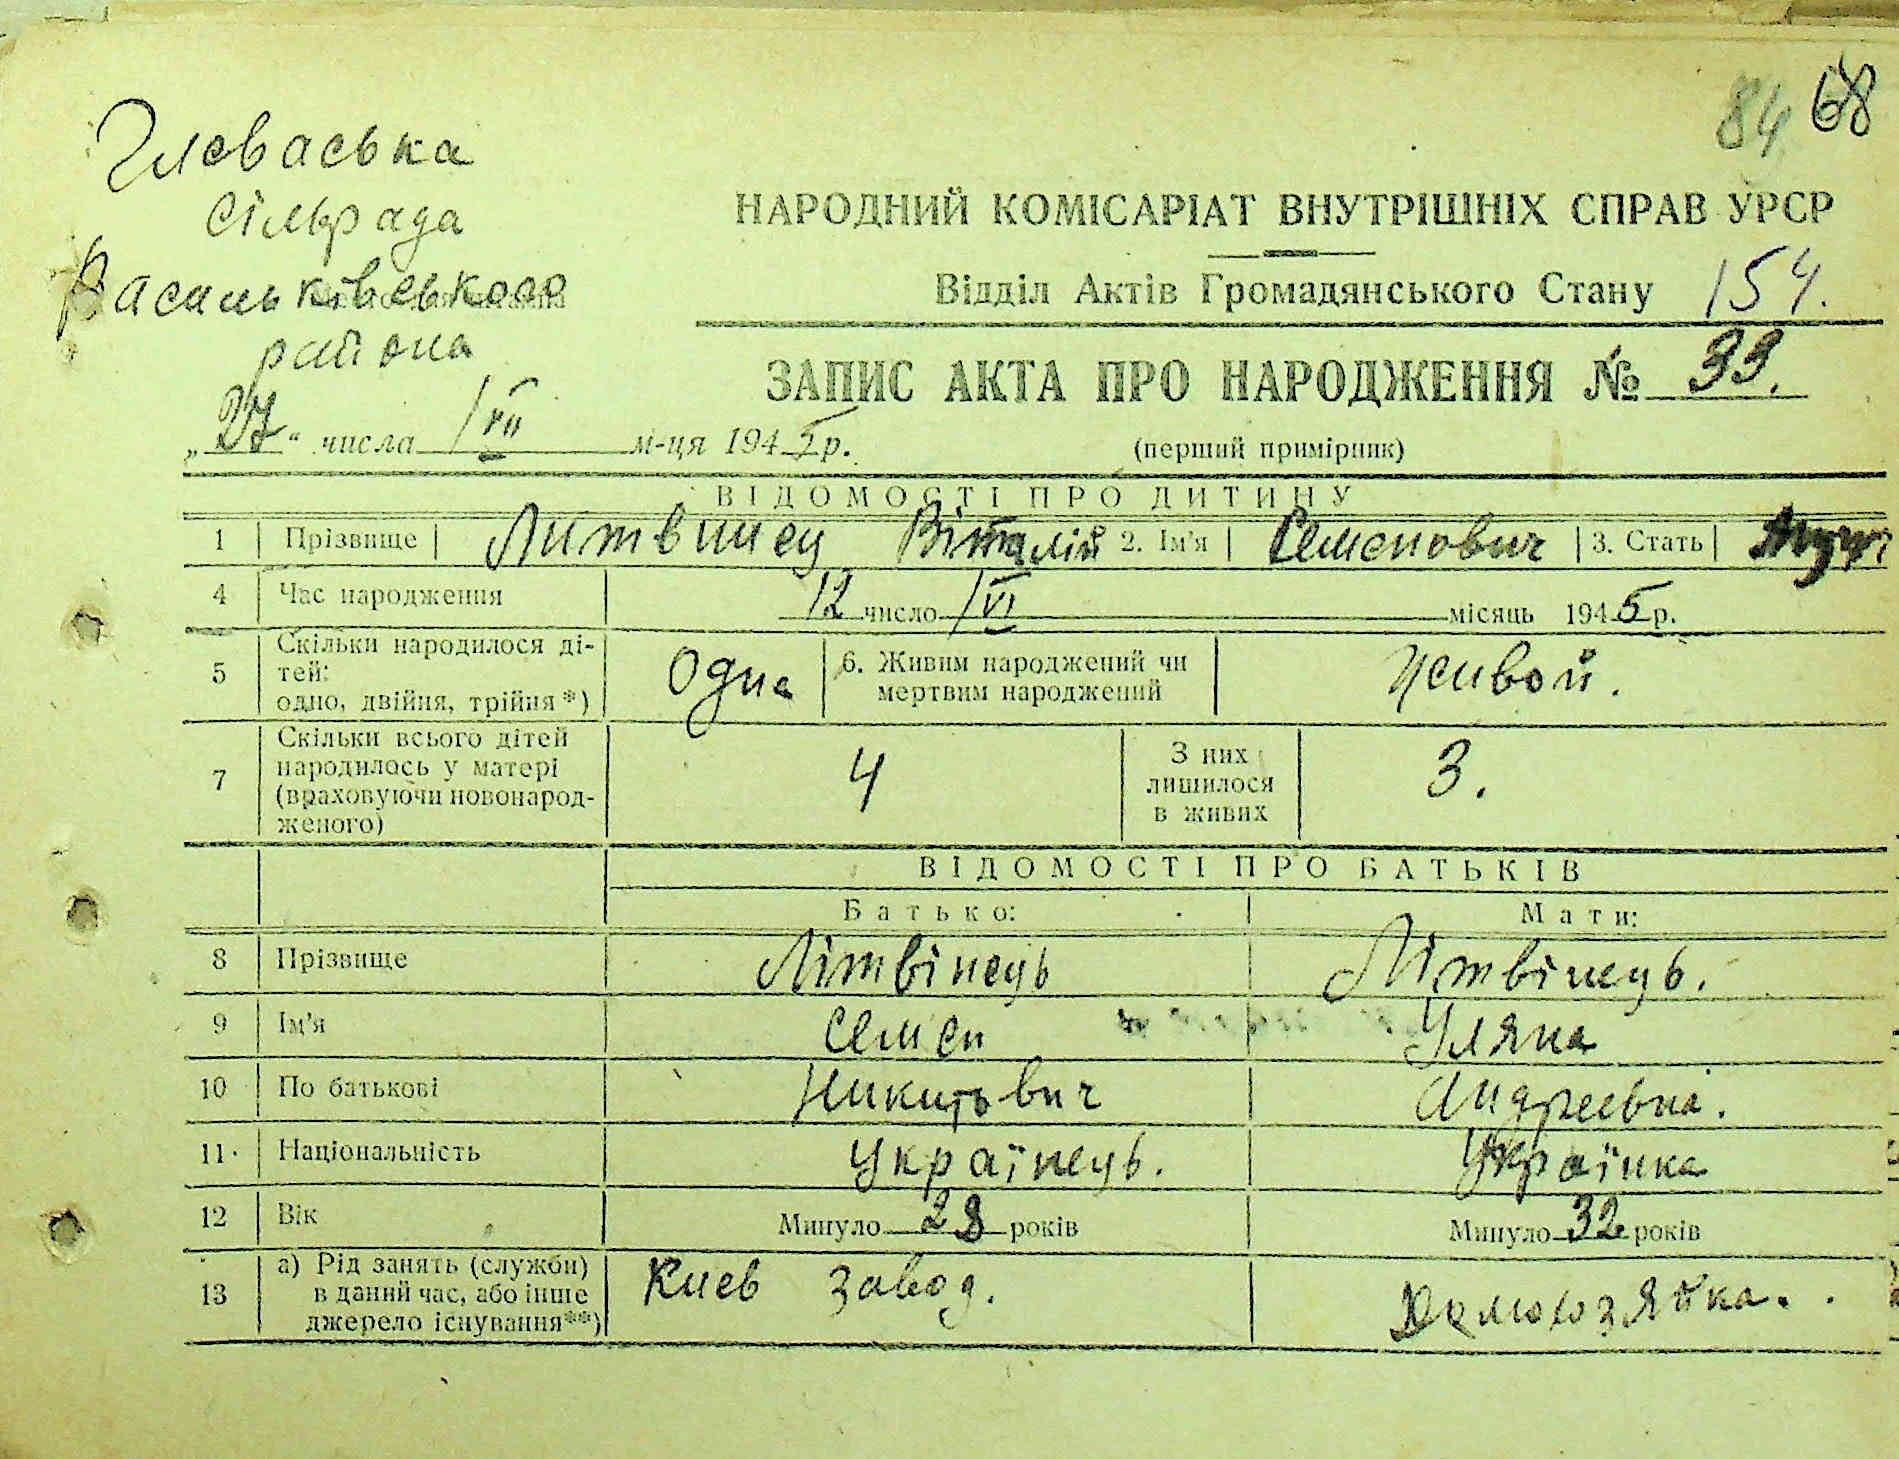 84 68
Глеваська
сільрада
Васильківського
района
НАРОДНИЙ КОМІСАРІАТ ВНУТРІШНІХ СПРАВ УРСР
Відділ Актів Громадянського Стану 154.
ЗАПИС АКТА ПРО НАРОДЖЕННЯ № 33.
„27“ числа /VII м-ця 1945 р. (перший примірник)
ВІДОМОСТІ ПРО ДИТИНУ
1 Прізвище Литвинец Віталій 2. Ім'я Семенович 3. Стать
4 Час народження 12 число /VI місяць 1945 р.
5 Скільки народилося ді-
тей:
одно, двійня, трійня *) Одна 6. Живим народжений чи
мертвим народжений Живой.
7 Скільки всього дітей
народилось у матері
(враховуючи новонарод-
женого) 4 З них
лишилося
в живих 3.
ВІДОМОСТІ ПРО БАТЬКІВ
Батько: Мати:
8 Прізвище Літвінець Літвінець.
9 Ім'я Семен Уляна
10 По батькові Никитович Андреевна.
11 Національність Українець. Українка
12 Вік Минуло 28 років Минуло 32 років
13 а) Рід занять (служби)
в даний час, або інше
джерело існування**) Киев завод. Домохозяйка.